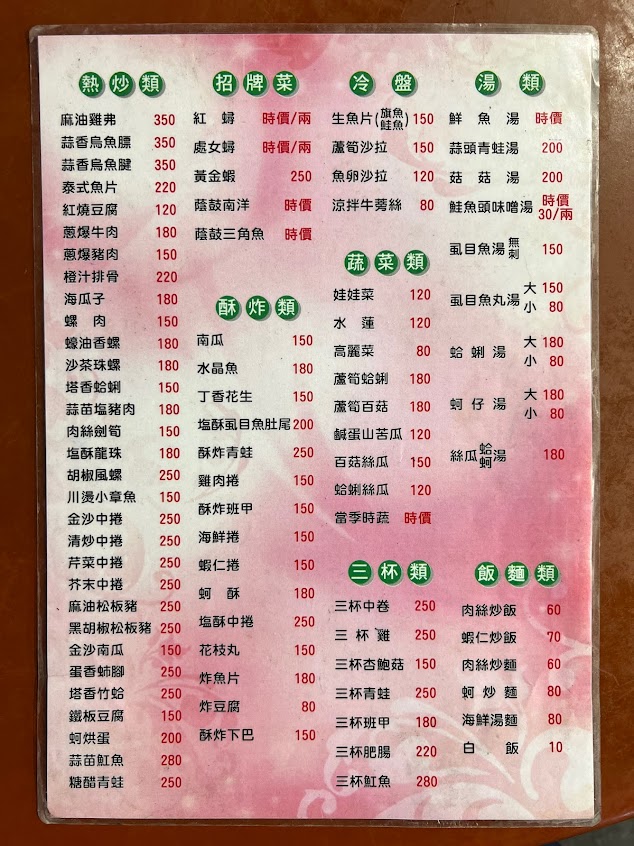 熱炒類
麻油雞弗 350
蒜香烏魚膘 350
蒜香烏魚腱 350
泰式魚片 220
紅燒豆腐 120
蔥爆牛肉 180
蔥爆豬肉 150
橙汁排骨 220
海瓜子 180
螺肉 150
蠔油香螺 180
沙茶珠螺 180
塔香蛤蜊 150
蒜苗塩豬肉 180
肉絲劍筍 150
塩酥龍珠 180
胡椒風螺 250
川燙小章魚 150
金沙中捲 250
清炒中捲 250
芹菜中捲 250
芥末中捲 250
麻油松板豬 250
黑胡椒松板豬 250
金沙南瓜 150
蛋香蚵腳 250
塔香竹蛤 250
鐵板豆腐 150
蚵烘蛋 200
蒜苗魟魚 280
糖醋青蛙 250
招牌菜
紅蟳 時價/兩
處女蟳 時價/兩
黃金蝦 250
蔭鼓南洋 時價
蔭鼓三角魚 時價
酥炸類
南瓜 150
水晶魚 180
丁香花生 150
塩酥虱目魚肚尾 200
酥炸青蛙 250
雞肉捲 150
酥炸班甲 150
海鮮捲 150
蝦仁捲 150
蚵酥 180
塩酥中捲 250
花枝丸 150
炸魚片 180
炸豆腐 80
酥炸下巴 150
冷盤
生魚片(旗魚 鮭魚) 150
蘆筍沙拉 150
魚卵沙拉 120
涼拌牛蒡絲 80
蔬菜類
娃娃菜 120
水蓮 120
高麗菜 80
蘆筍蛤蜊 180
蘆筍百菇 180
鹹蛋山苦瓜 120
百菇絲瓜 150
蛤蜊絲瓜 120
當季時蔬 時價
三杯類
三杯中卷 250
三杯雞 250
三杯杏鮑菇 150
三杯青蛙 250
三杯班甲 180
三杯肥腸 220
三杯魟魚 280
湯類
鮮魚湯 時價
蒜頭青蛙湯 200
菇菇湯 200
鮭魚頭味噌湯 時價 30/兩
虱目魚湯 無刺 150
虱目魚丸湯 大 150
小 80
蛤蜊湯 大 180
小 80
蚵仔湯 大 180
小 80
絲瓜蛤蚵湯 180
飯麵類
肉絲炒飯 60
蝦仁炒飯 70
肉絲炒麵 60
蚵炒麵 80
海鮮湯麵 80
白飯 10